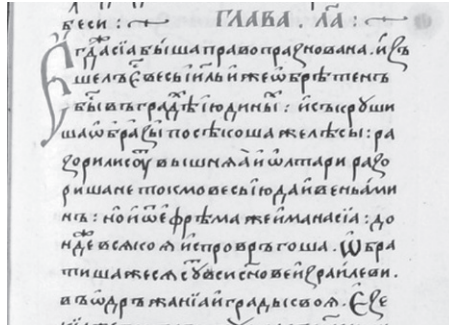 беси : ГЛАВА . л҃а :
Егдⷤа сїа быша право празнована . и҆зъ
шелъ е҆ весь і҆и҃ль и҆же ѡ҆брѣтенъ
бы въ градⷯѣ і҆юдины : и҆ съкруши
ша ѡ҆бразы посѣкоша же лѣсы : ра
зорили соуⷮ вышняа҆ и҆ ѡ҆лтари разо
риша не токмо весь і҆юда и҆ веньами
нъ : но и҆ ѿ ефрѣма же и҆ манасїа : до
ндⷤе вся испровръгоша . Ѡбра
тиша же ся вси сн҃ове и҆зраилеви .
въ ѡ҆дръжанїа и҆ грады своя . Езе